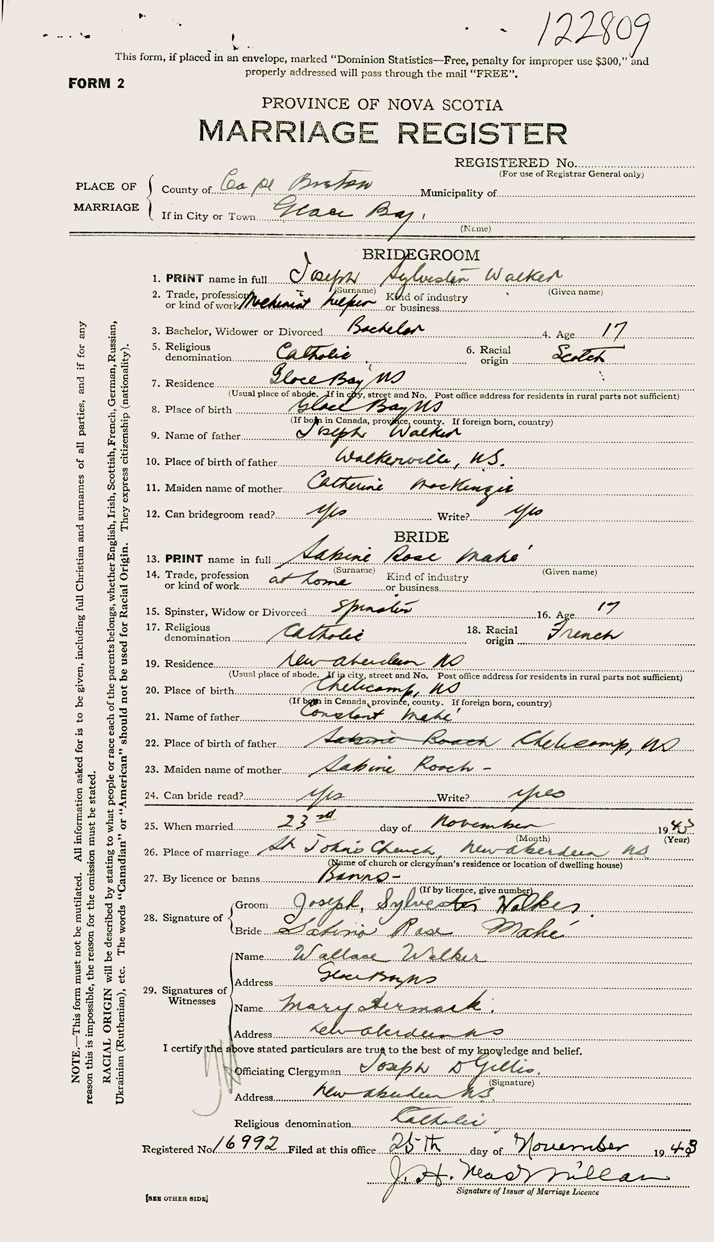 122809
This form, if placed in an envelope, marked "Dominion Statistics—Free, penalty for improper use $300," and
properly addressed will pass through the mail "FREE".
FORM 2
PROVINCE OF NOVA SCOTIA
MARRIAGE REGISTER
REGISTERED No.
(For use of Registrar General only)
PLACE OF MARRIAGE
County of Cape Breton Municipality of
If in City or Town Glace Bay.
(Name)
BRIDEGROOM
1. PRINT name in full Joseph Sylvester Walker
(Surname) (Given name)
2. Trade, profession or kind of work Mechinist helper Kind of industry or business
3. Bachelor, Widower or Divorced Bachelor 4. Age 17
5. Religious denomination Catholic 6. Racial origin Scotch
7. Residence Glace Bay NS
(Usual place of abode. If in city, street and No. Post office address for residents in rural parts not sufficient)
8. Place of birth Glace Bay NS
(If born in Canada, province, county. If foreign born, country)
9. Name of father Joseph Walker
10. Place of birth of father Walkerville, NS.
11. Maiden name of mother Catherine MacKenzie
12. Can bridegroom read? yes Write? yes
BRIDE
13. PRINT name in full Sabine Rose Mahé
(Surname) (Given name)
14. Trade, profession or kind of work at home Kind of industry or business
15. Spinster, Widow or Divorced Spinster 16. Age 17
17. Religious denomination Catholic 18. Racial origin French
19. Residence New Aberdeen NS
(Usual place of abode. If in city, street and No. Post office address for residents in rural parts not sufficient)
20. Place of birth Cheticamp, NS
(If born in Canada, province, county. If foreign born, country)
21. Name of father Constant Mahé
22. Place of birth of father Sabine Roach Cheticamp, NS
23. Maiden name of mother Sabine Roach -
24. Can bride read? yes Write? yes
25. When married 23rd day of November 1943
(Month) (Year)
26. Place of marriage St John's Church, New Aberdeen NS
(Name of church or clergyman's residence or location of dwelling house)
27. By licence or banns Banns -
(If by licence, give number)
28. Signature of
Groom Joseph, Sylvester Walker.
Bride Sabine Rose Mahé
29. Signatures of Witnesses
Name Wallace Walker
Address Glace Bay NS
Name Mary
Address New Aberdeen NS
I certify the above stated particulars are true to the best of my knowledge and belief.
Officiating Clergyman Joseph D Gillis.
(Signature)
Address New Aberdeen NS
Religious denomination Catholic
Registered No. 16992 Filed at this office 25th day of November 1943
J. H. MacMillan
Signature of Issuer of Marriage Licence
[SEE OTHER SIDE]
NOTE.—This form must not be mutilated. All information asked for is to be given, including full Christian and surnames of all parties, and if for any
reason this is impossible, the reason for the omission must be stated.
RACIAL ORIGIN will be described by stating to what people or race each of the parents belongs, whether English, Irish, Scottish, French, German, Russian,
Ukrainian (Ruthenian), etc. The words "Canadian" or "American" should not be used for Racial Origin. They express citizenship (nationality).